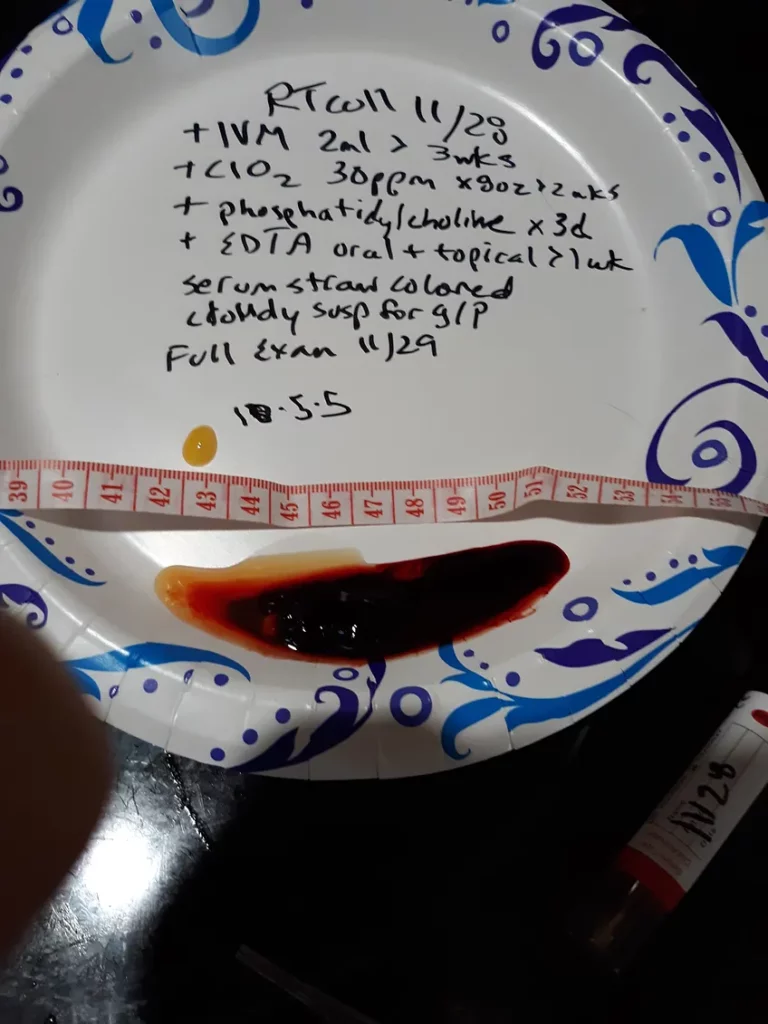 RT coll 11/28
+ IVM 2ml > 3wks
+ ClO2 30ppm x 9oz > 2wks
+ phosphatidylcholine x 3d
+ EDTA oral + topical > 1wk
serum straw colored
cloudy susp for g/p
Full Exam 11/29
.5.5
39 40 41 42 43 44 45 46 47 48 49 50 51 52 53 54 55
11/28